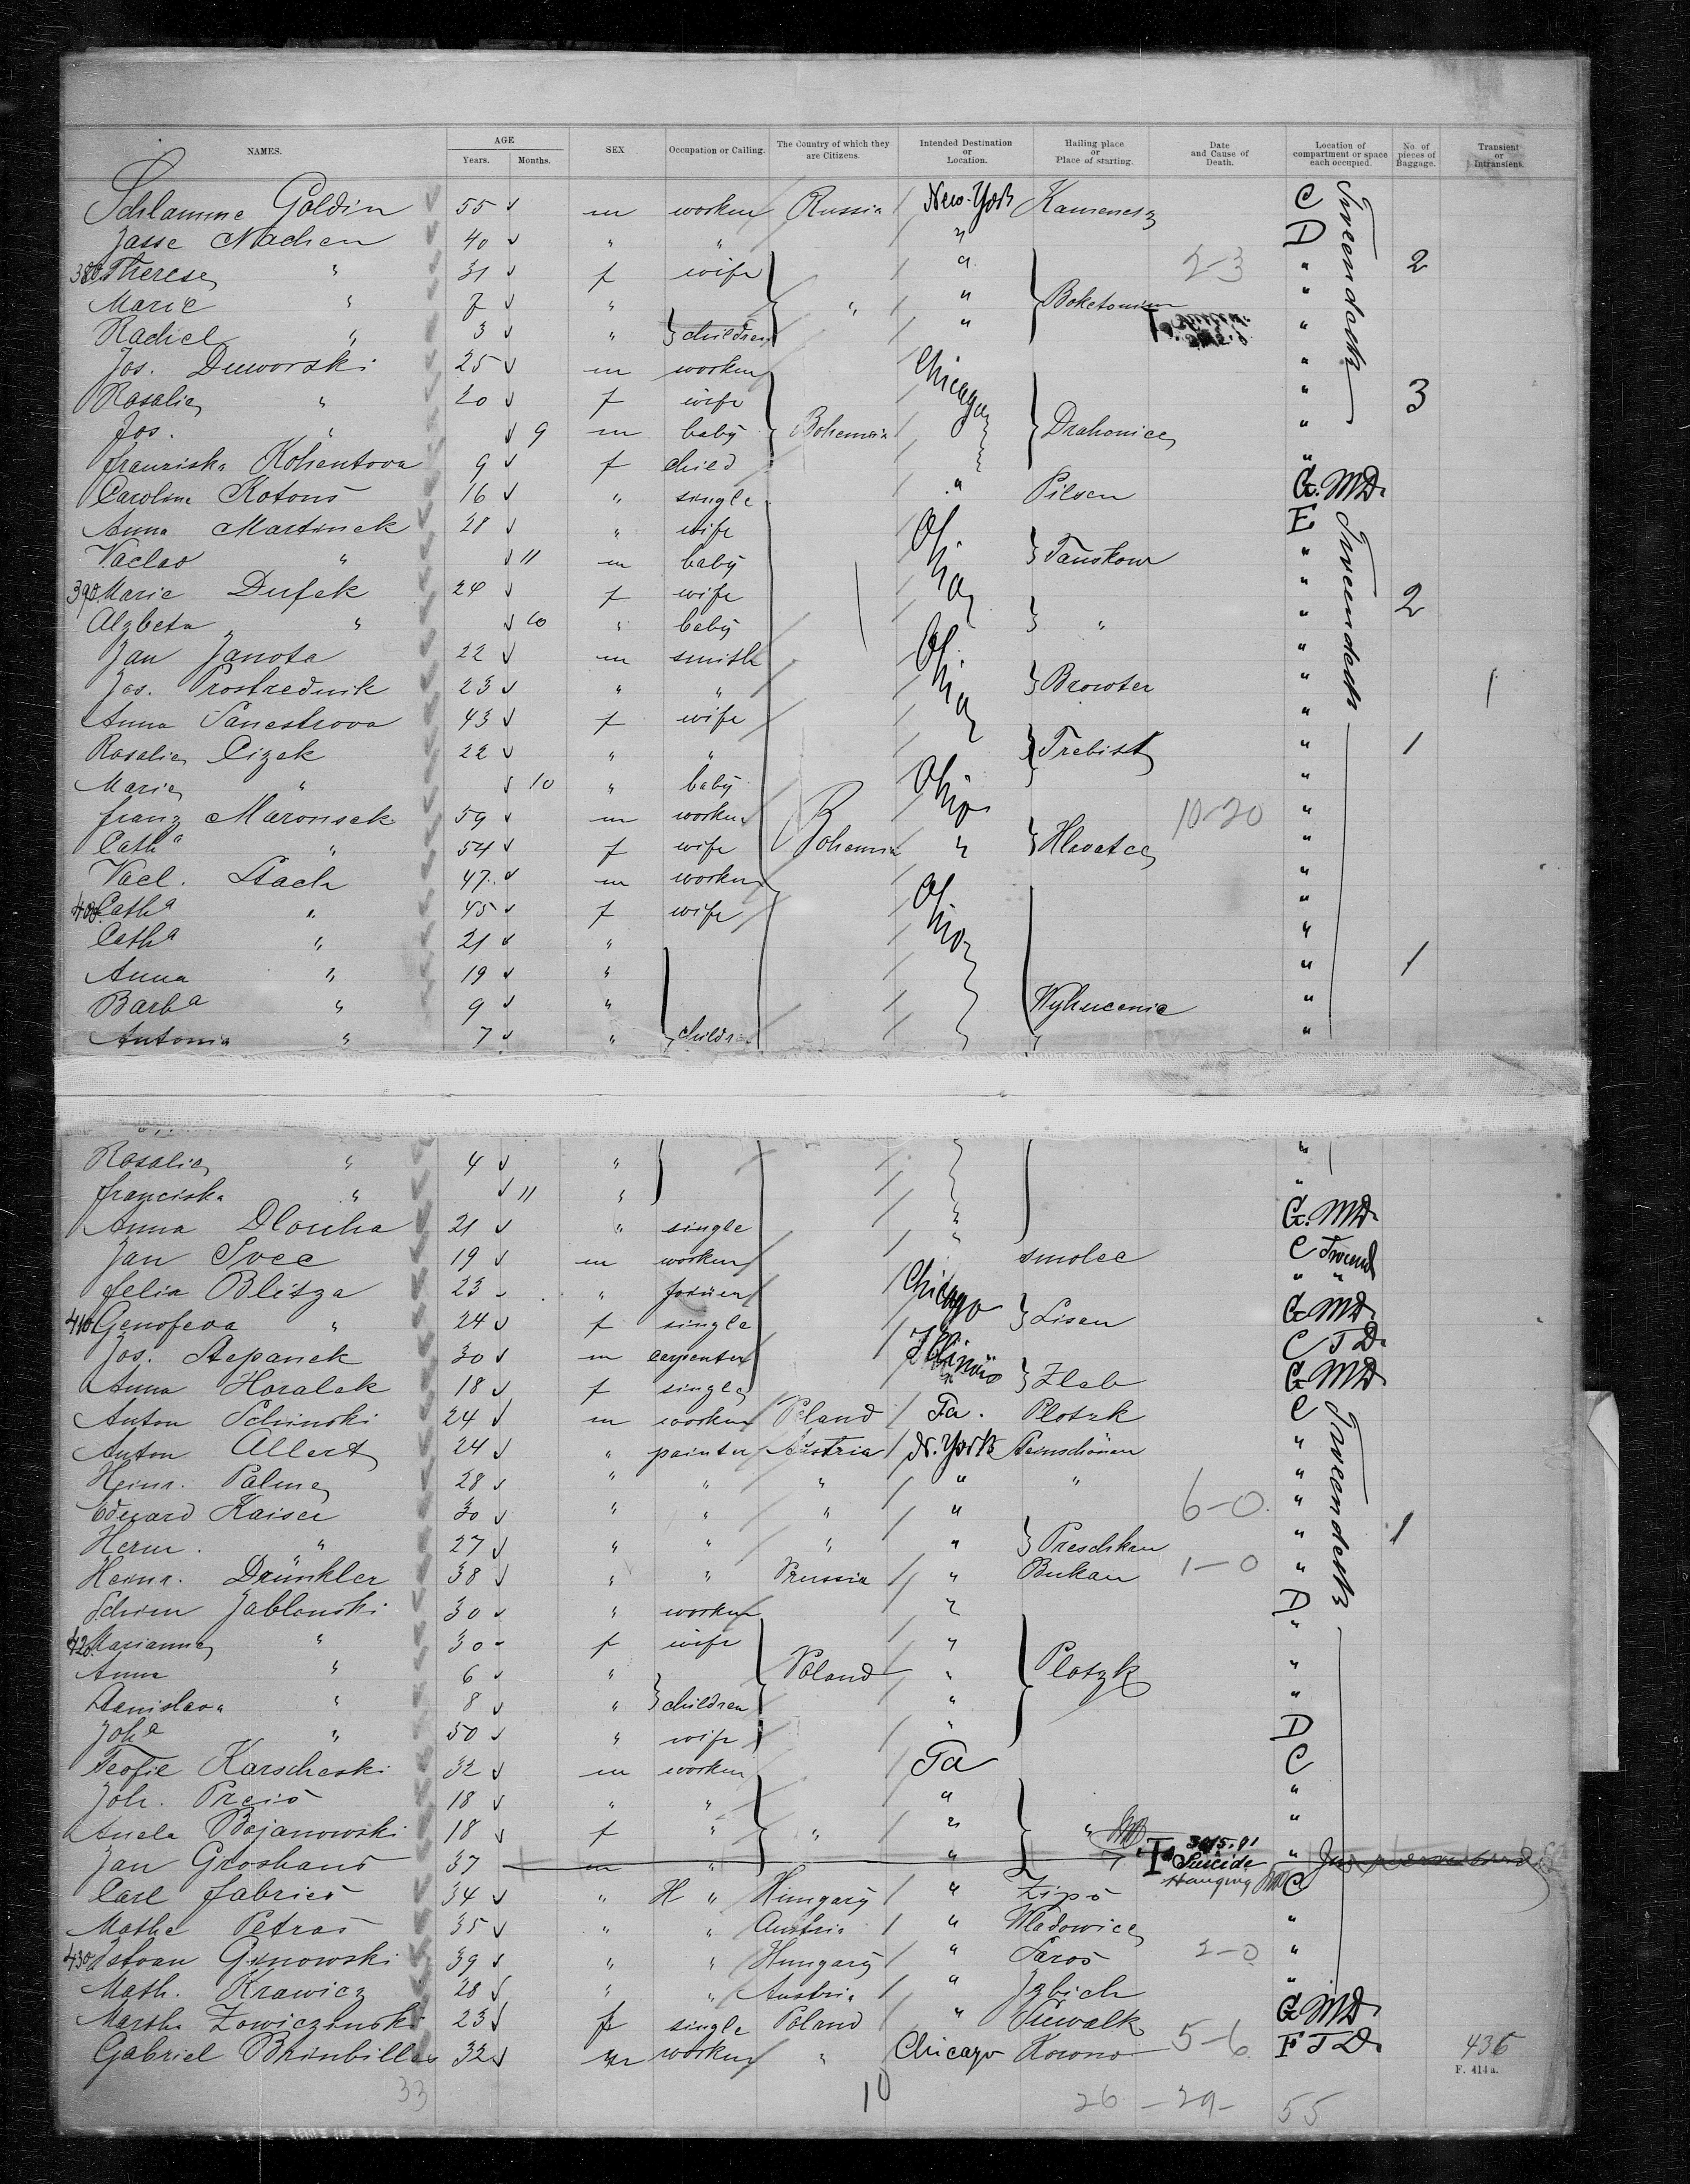 NAMES. AGE Years. Months. SEX Occupation or Calling. The Country of which they are Citizens. Intended Destination or Location. Hailing place or Place of starting. Date and Cause of Death. Location of compartment or space each occupied. No. of pieces of Baggage. Transient or Intransient.
Schlamme Goldin 55 m worker Russia New-York C Tweendeck
Jasse Nachen 40 " " " D
380 Therese " 31 f wife " 2-3 " 2
Marie " 7 " " " "
Rachel " 3 " children " "
Jos. Duworski 25 m worker Chicago "
Rosalie " 20 f wife " 3
Jos. " 9 m baby Bohemia Drahonice "
Kohentova 9 f child "
Caroline Kotous 16 " single " Pilsen G. MD.
Anna Martinek 28 " wife Ohio E Tweendeck
Vaclav " 11 m baby Tauskow "
390 Marie Dufek 24 f wife " 2
Alzbeta " 10 " baby " "
Jan Janota 22 m smith Ohio "
Jos. Prostrednik 23 " " Browter " 1
Anna Sanestrova 43 f wife "
Rosalie Cizek 22 " " " 1
Marie " 10 " baby Ohio "
Franz Maronsek 59 m worker 10-20 "
Cath a " 54 f wife Bohemia " Hlavatce "
Vacl. Stach 47 m worker "
400 Cath a " 45 f wife Ohio "
Cath a " 21 " "
Anna " 19 " " 1
Barb a " 9 " Wyhucenic "
Antonia " 7 " children "
Rosalie " 4 " "
Franciska " 11 " "
Anna Dlouha 21 " single " G. MD.
Jan Svec 19 m worker " smolec C Tweend
Felix Blitza 23 " Chicago " "
410 Genofeva " 24 f single Lisen G. MD.
Jos. Stepanek 30 m carpenter Illinois C T D.
Anna Horalek 18 f single " Zleb G. MD
Anton Schinski 24 m worker Poland Pa. Plotzk C Tweendeck
Anton Allert 24 " painter Austria N. York "
Heinr. Palme 28 " " " " " "
Edward Kaiser 30 " " " " 6-0. "
Herm. " 27 " " " " Preschkau " 1
Heinr. Drünkler 38 " " Prussia " Bukau 1-0 "
Jablonski 30 " worker " D
420 Marianne " 30 f wife " "
Anna " 6 " Poland " Plotzk "
Stanislava " 8 " children " "
Joh a " 50 " wife " D
Teofie Karscheski 32 m worker Pa C
Joh. Preis 18 " " " "
Anela Bojanowski 18 f " " " " "
Jan Groshans 37 m " " Suicide Hanging "
Carl Fabries 34 " H " Hungary " Zips C
Mathe Petras 35 " " Austria " Wladowice "
430 Istvan Gmowski 39 " " Hungary " Saros 2-0 "
Math. Krawicz 28 " " Austria " Izbich "
Martha 23 f single Poland " Suwalk G MD.
Gabriel 32 m worker " Chicago Kowno 5-6 F T D. 436
F. 414a.
33 10 26 - 29 - 55